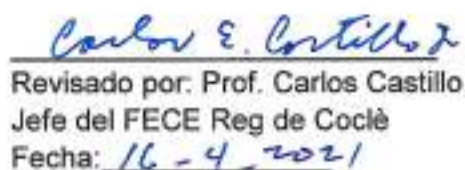 Carlos E. Castillo J
Revisado por: Prof. Carlos Castillo
Jefe del FECE Reg de Coclè
Fecha: 16 - 4 - 2021